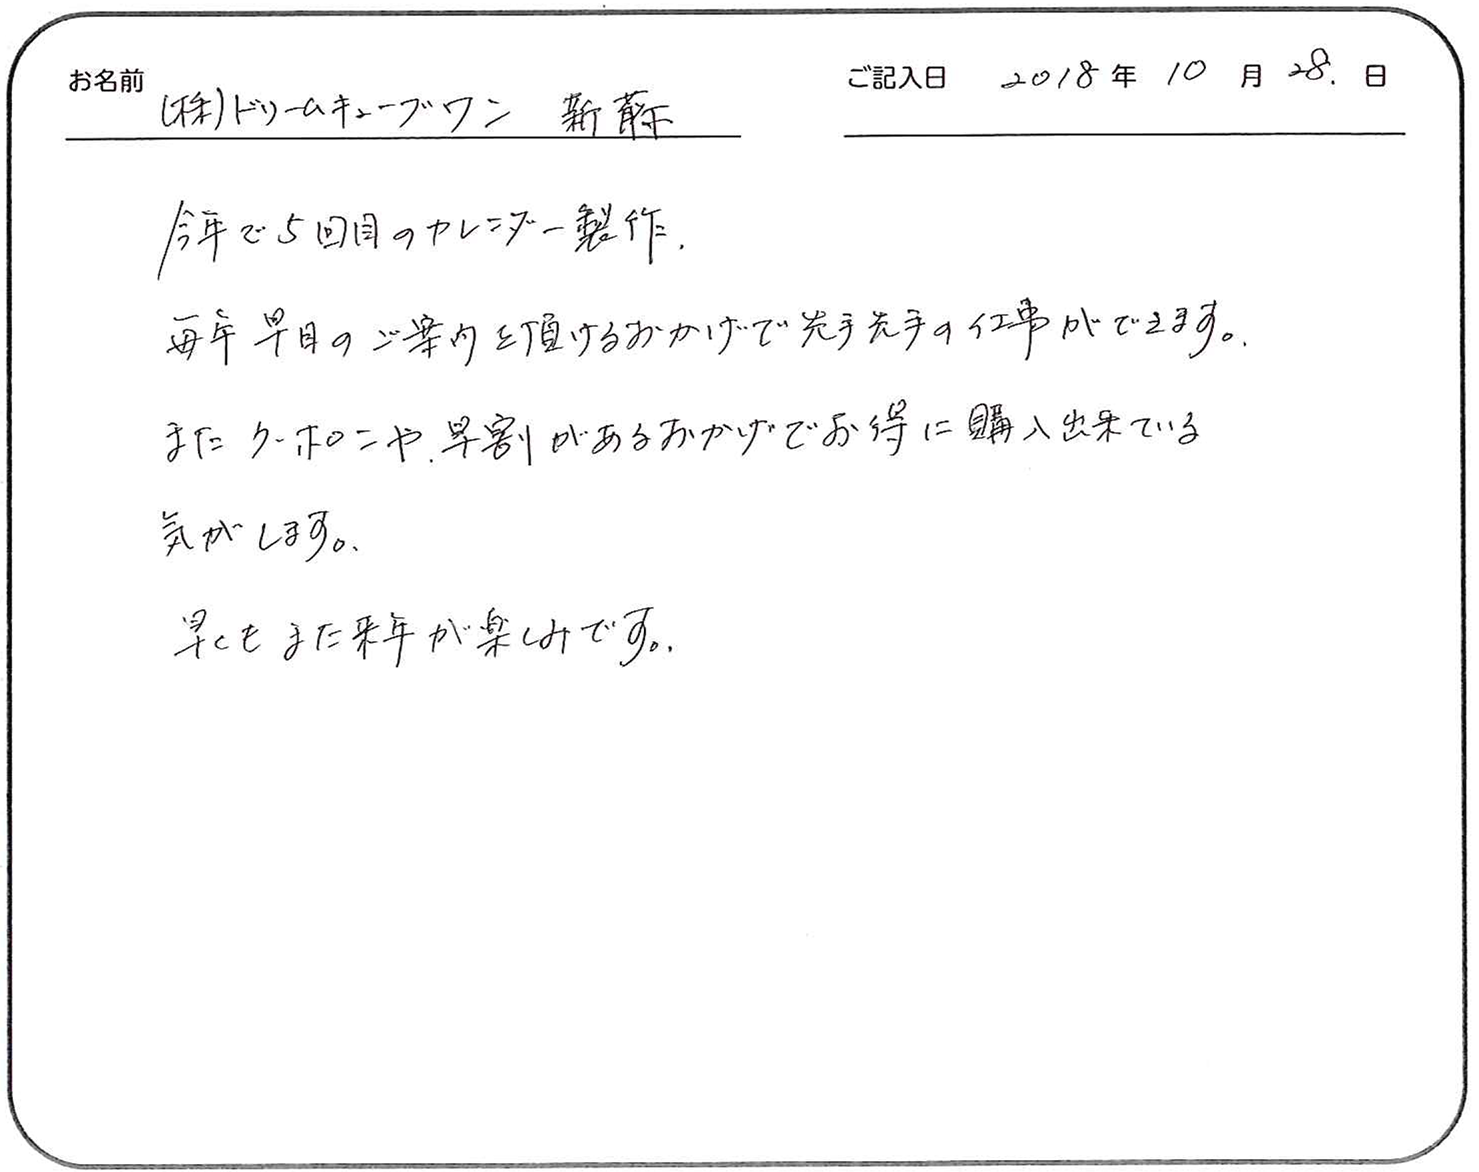 お名前 (株)ドリームキューブワン 新藤
ご記入日 2018年 10月 28.日
今年で5回目のカレンダー製作.
毎年早目のご案内を頂けるおかげで先手先手の仕事ができます。.
またクーポンや.早割があるおかげでお得に購入出来ている
気がします。.
早くもまた来年が楽しみです。.